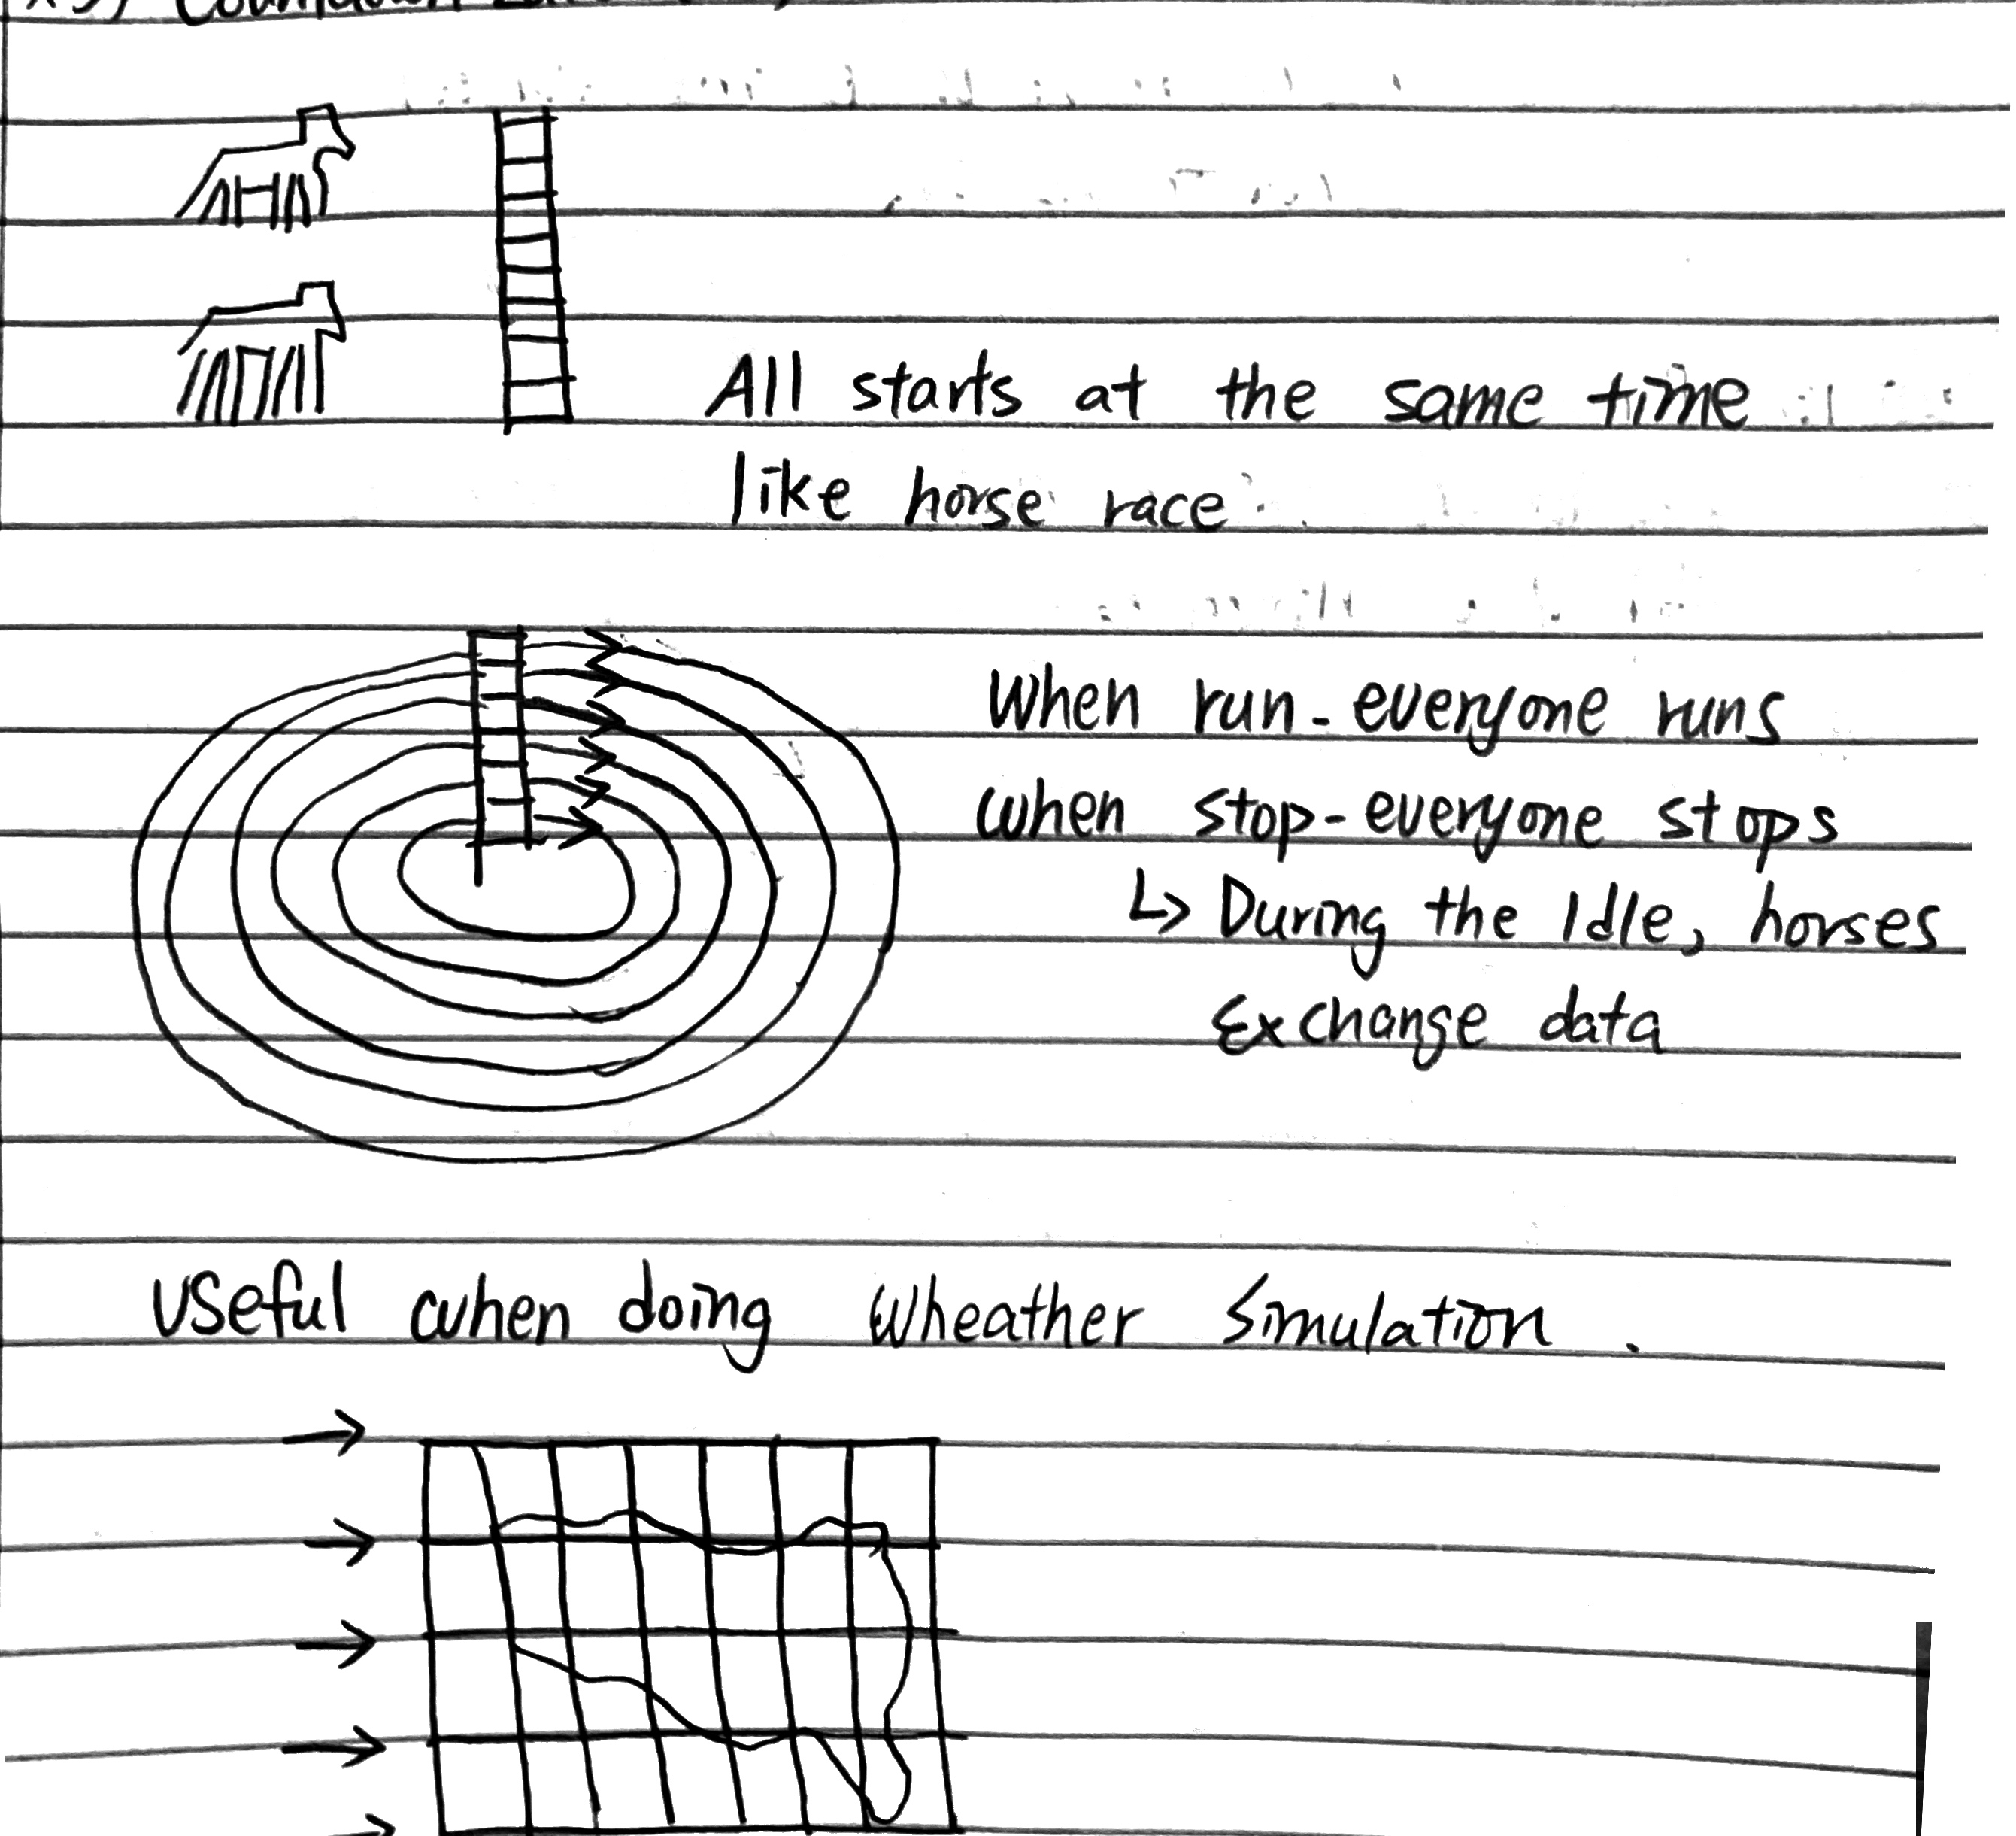 Countdown
All starts at the same time
like horse race
When run-everyone runs
when stop-everyone stops
↳ During the Idle, horses
Exchange data
Useful when doing Wheather Simulation.